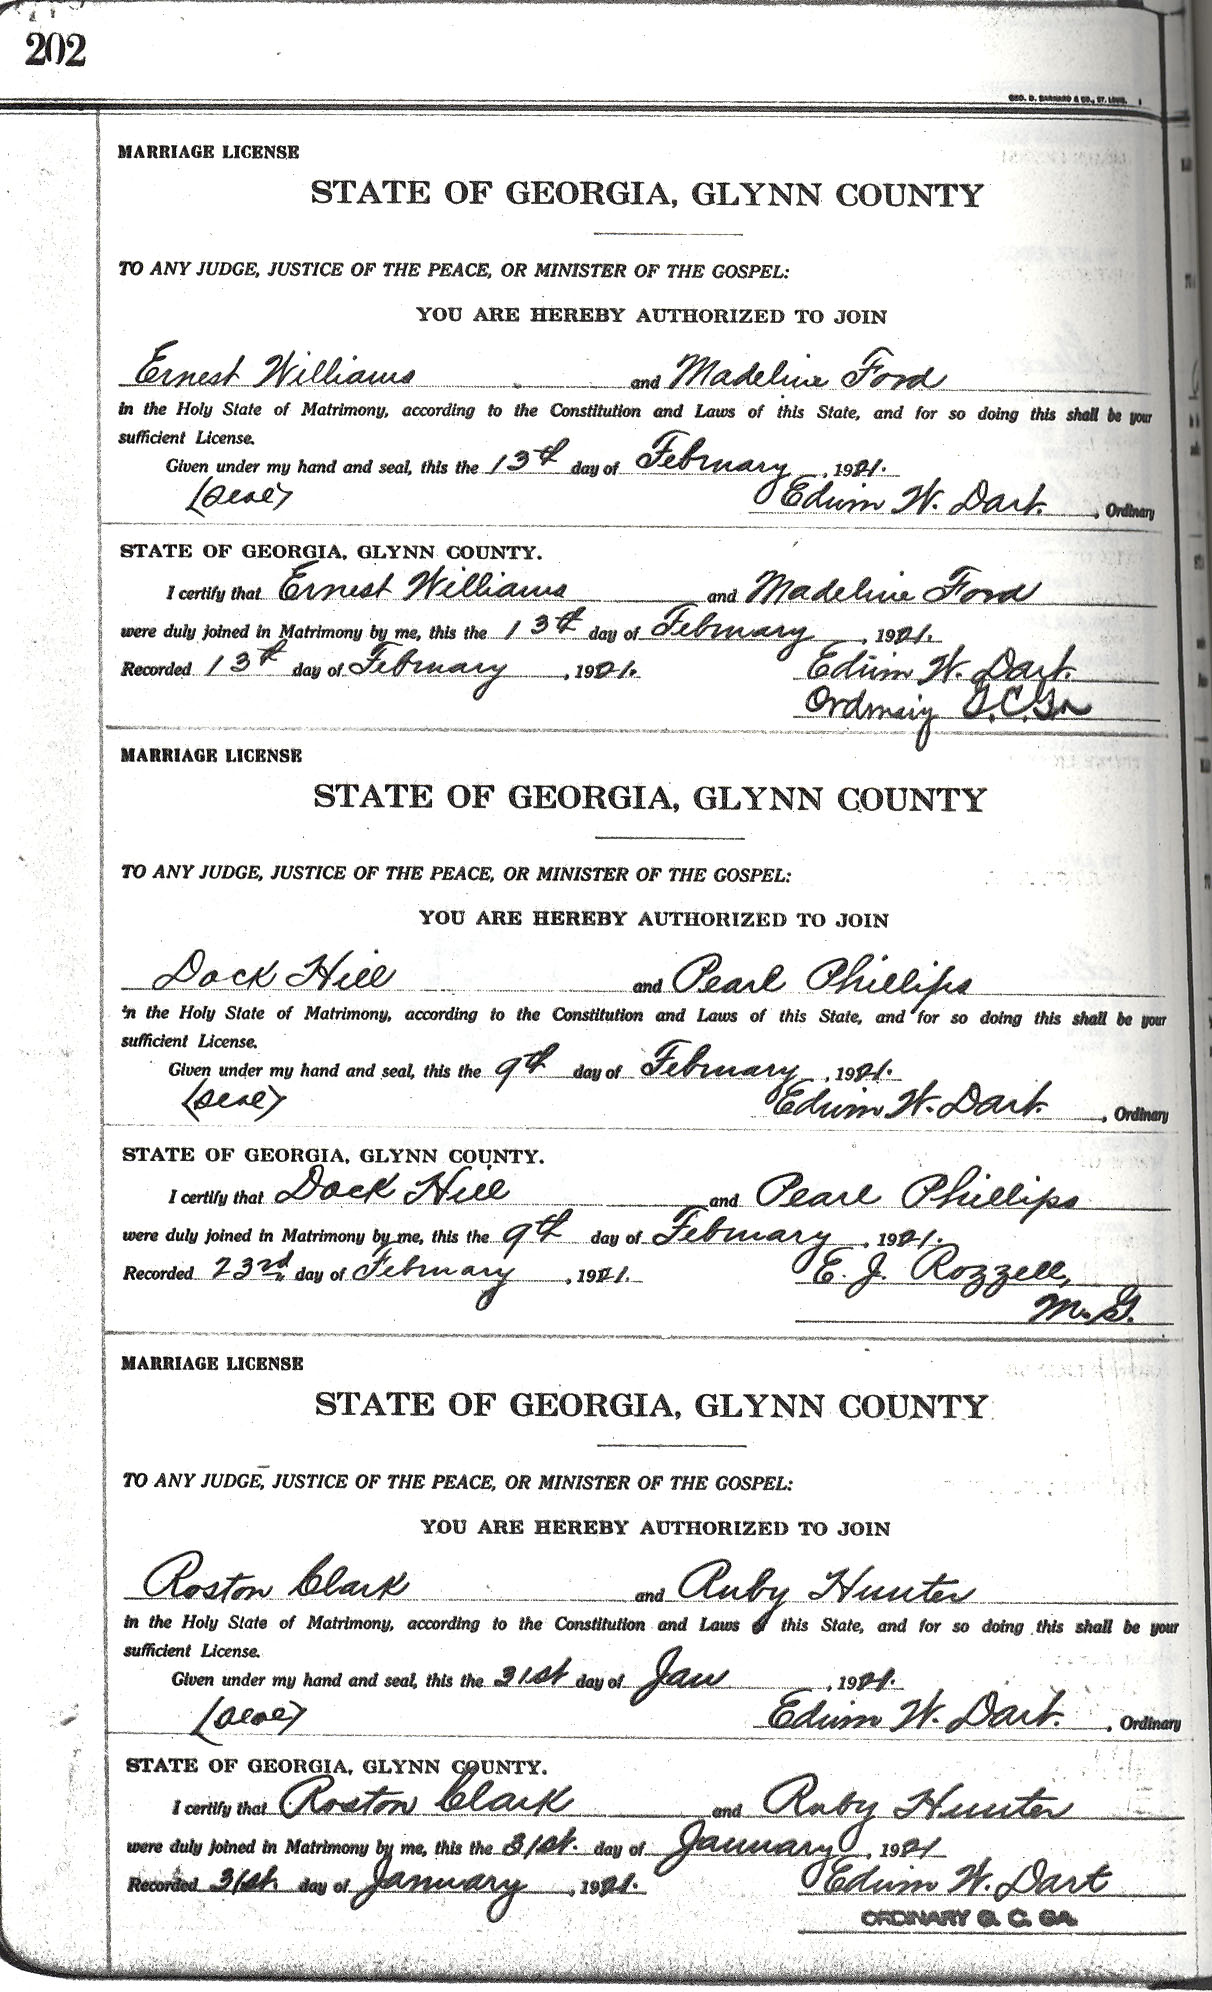 202
GEO. D. BARNARD & CO., ST. LOUIS.
MARRIAGE LICENSE
STATE OF GEORGIA, GLYNN COUNTY
TO ANY JUDGE, JUSTICE OF THE PEACE, OR MINISTER OF THE GOSPEL:
YOU ARE HEREBY AUTHORIZED TO JOIN
Ernest Williams and Madeline Ford
in the Holy State of Matrimony, according to the Constitution and Laws of this State, and for so doing this shall be your
sufficient License.
Given under my hand and seal, this the 13th day of February, 1921.
(seal) Edwin W. Dart. , Ordinary
STATE OF GEORGIA, GLYNN COUNTY.
I certify that Ernest Williams and Madeline Ford
were duly joined in Matrimony by me, this the 13th day of February, 1921.
Recorded 13th day of February, 1921. Edwin W. Dart.
Ordinary G.C.Ga
MARRIAGE LICENSE
STATE OF GEORGIA, GLYNN COUNTY
TO ANY JUDGE, JUSTICE OF THE PEACE, OR MINISTER OF THE GOSPEL:
YOU ARE HEREBY AUTHORIZED TO JOIN
Dock Hill and Pearl Phillips
in the Holy State of Matrimony, according to the Constitution and Laws of this State, and for so doing this shall be your
sufficient License.
Given under my hand and seal, this the 9th day of February, 1921.
(seal) Edwin W. Dart. , Ordinary
STATE OF GEORGIA, GLYNN COUNTY.
I certify that Dock Hill and Pearl Phillips
were duly joined in Matrimony by me, this the 9th day of February, 1921.
Recorded 23rd day of February, 1921. E. J. Rozzell,
M. G.
MARRIAGE LICENSE
STATE OF GEORGIA, GLYNN COUNTY
TO ANY JUDGE, JUSTICE OF THE PEACE, OR MINISTER OF THE GOSPEL:
YOU ARE HEREBY AUTHORIZED TO JOIN
Roston Clark and Ruby Hunter
in the Holy State of Matrimony, according to the Constitution and Laws of this State, and for so doing this shall be your
sufficient License.
Given under my hand and seal, this the 31st day of Jan, 1921.
(seal) Edwin W. Dart. , Ordinary
STATE OF GEORGIA, GLYNN COUNTY.
I certify that Roston Clark and Ruby Hunter
were duly joined in Matrimony by me, this the 31st. day of January, 1921
Recorded 31st. day of January, 1921. Edwin W. Dart
ORDINARY G. C. GA.